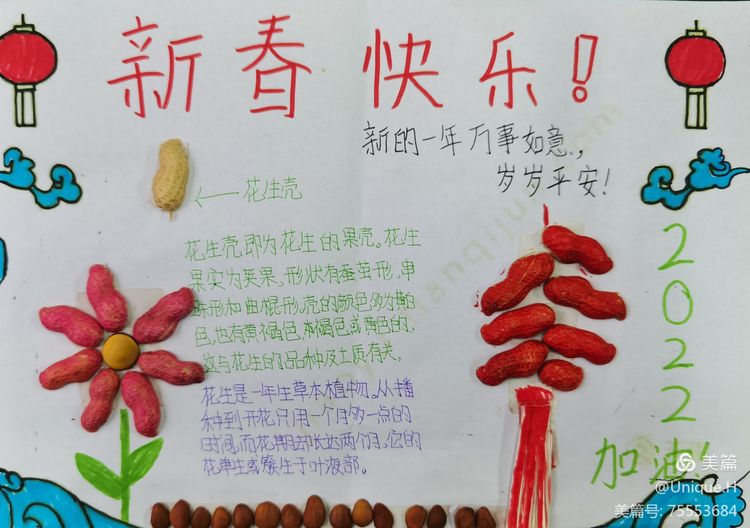 新春快乐!
新的一年万事如意,
岁岁平安!
花生壳
花生壳即为花生的果壳。花生
果实为荚果,形状有蚕茧形,串
珠形和曲棍形,壳的颜色多为黄白
色,也有黄褐色,褐色或黄色的,
这与花生的品种及土质有关。
花生是一年生草本植物。从播
种到开花只用一个月多一点的
时间,而花期却长达两个月,它的
花单生或簇生于叶液部。
2022
加油!
美篇
@Unique.H
美篇号: 75553684